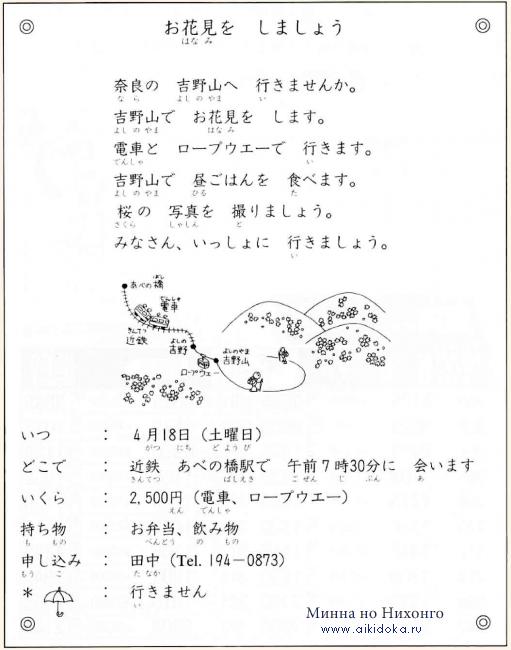 お花見を しましょう
はなみ
奈良の 吉野山へ 行きませんか。
なら よしのやま い
吉野山で お花見を します。
よしのやま はなみ
電車と ロープウエーで 行きます。
でんしゃ い
吉野山で 昼ごはんを 食べます。
よしのやま ひる た
桜の 写真を 撮りましょう。
さくら しゃしん と
みなさん、いっしょに 行きましょう。
い
ばし
あべの橋
でんしゃ
電車
きんてつ
近鉄
よしの
吉野
ロープウェー
よしのやま
吉野山
いつ : 4月18日(土曜日)
がつ にち どようび
どこで : 近鉄 あべの橋駅で 午前7時30分に 会います
きんてつ ばしえき ごぜん じ ぷん あ
いくら : 2,500円(電車、ロープウエー)
えん でんしゃ
持ち物 : お弁当、飲み物
も もの べんとう の もの
申し込み : 田中(Tel. 194-0873)
もう こ たなか
* : 行きません
い
Минна но Нихонго
www.aikidoka.ru